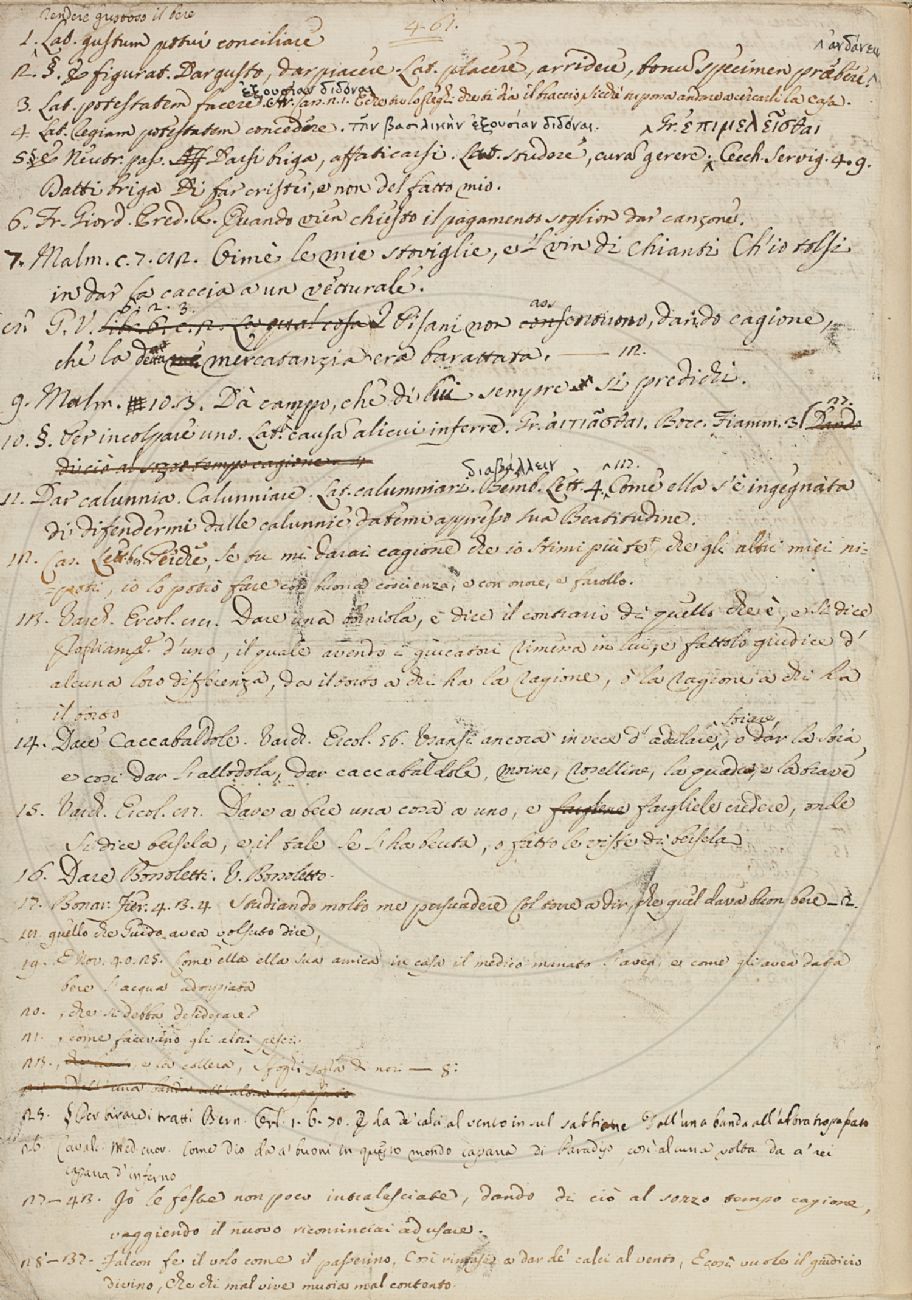 rendere gustoso il bere
461.
1. Lat. gustum potui conciliare
ἁνδάνειν
2. §. figurat. Dar gusto, dar piacere. Lat. placere, arridere, bonu specimen præbere.
ἐξουσίαν διδόναι
3. Lat. potestatem facere.
4. Lat. legiam potestatem concedere. τὴν βασιλικὴν ἐξουσίαν διδόναι. Gr. ἐπιμελεῖσθαι
5. § E Neutr. pass. Darsi briga, affaticarsi. Lat. studere, curã gerere. Cecch. Servig. 4. 9.
Datti briga Di far cristei, e non del fatto mio.
6. Fr. Giord. Pred. R. Quando vien chiesto il pagamento soglion dar canzone.
7. Malm. c. 7. 12. Oimè le mie stoviglie, e 'l vin di Chianti Ch'io tolsi
in dar la caccia a un vetturale.
G. V. Lib. 6. c. 2. La qual cosa I Pisani non consentirono, dando cagione,
che la detta mercatanzia era barattata. — 12.
9. Malm. 10. 3. Dà campo, che di lui sempre si predichi.
10. §. Per incolpare uno. Lat. causã alicui inferre. Gr. αἰτιᾶσθαι. Bocc. Fiamm. 3. Dando
di ciò al sozzo tempo cagione. 4
διαβάλλειν
11. Dar calunnia. Calunniare. Lat. calumniari. Bemb. Lett. 4. Come ella s'è ingegnata
di difendermi dalle calunnie datemi appresso sua Beatitudine.
12. Car. Lett. Sicchè, se tu mi darai cagione che io stimi più te, che gli altri miei ni-
poti, io lo potrò fare con buona coscienza, e con onore, e farollo.
13. Varch. Ercol. Dare una bniola, è dire il contrario di quello che è, e si dice
d'uno, il quale avendo i giucatori rimessa in lui, e fattolo giudice d'
alcuna loro differenza, da il torto a chi ha la ragione, o la ragione a chi ha
il torto
14. Dare Caccabaldole. Varch. Ercol. 56. Usansi ancora in vece d'adulare, soiare, o dar la soia,
e così dar l'allodola, dar caccabaldole, moine, roselline, la quadra, e la trave
15. Varch. Ercol. Dare a bere una cosa a uno, e fargliene fargliele credere, onde
si dice bersela, e il tale se l'ha beuta, o fatto le viste di bersela
16. Dare Borroletti. V. Borroletto.
17. Bonar. Fier. 4. 3. 4 Studiando molto me persuadere Col torre a dir, che quel dava buon bere — 2.
quello che Guido avea voluto dire,
19. E Nov. 90. 25. Come ella ella sua amica in casa il medico menato l'avea, e come gli avea data
bere l'acqua adoppiata
20. , che si debba desiderare?
21. , come facevano gli altri pesci.
23. , e la collera, sfogli sopra di noi. — 8.
dall' una banda all'altra trapassato
25. § Per tirar di tratti Bern. Orl. 1. 6. 70. E da de' calci al vento in sul sabbione Dall'una banda all'altra trapassato
26 Caval. Med. cuor. Come Dio da a' buoni in questo mondo caparra di Paradiso, così alcuna volta da a' rei
caparra d'inferno
27 — 42. Io le feste non poco intralasciate, dando di ciò al sozzo tempo cagione,
vaggiendo il nuovo ricominciai ad usare.
28 — 32. Falcon fe il volo come il passerino, Così rimase a dar de' calci al vento, E così vuole il giudicio
divino, Che chi mal vive muoia mal contento.